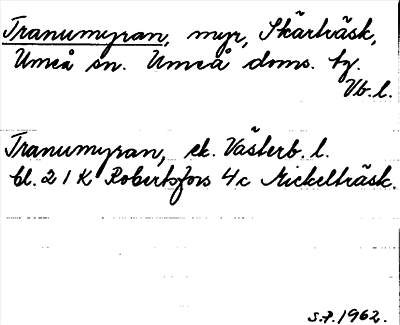 Tranumyran, myr, Skärträsk,
Umeå sn. Umeå doms. tg.
Vb. l.
Tranumyran, ek. Västerb. l.
bl. 21 K Robertsfors 4c Mickelträsk.
S.P. 1962.